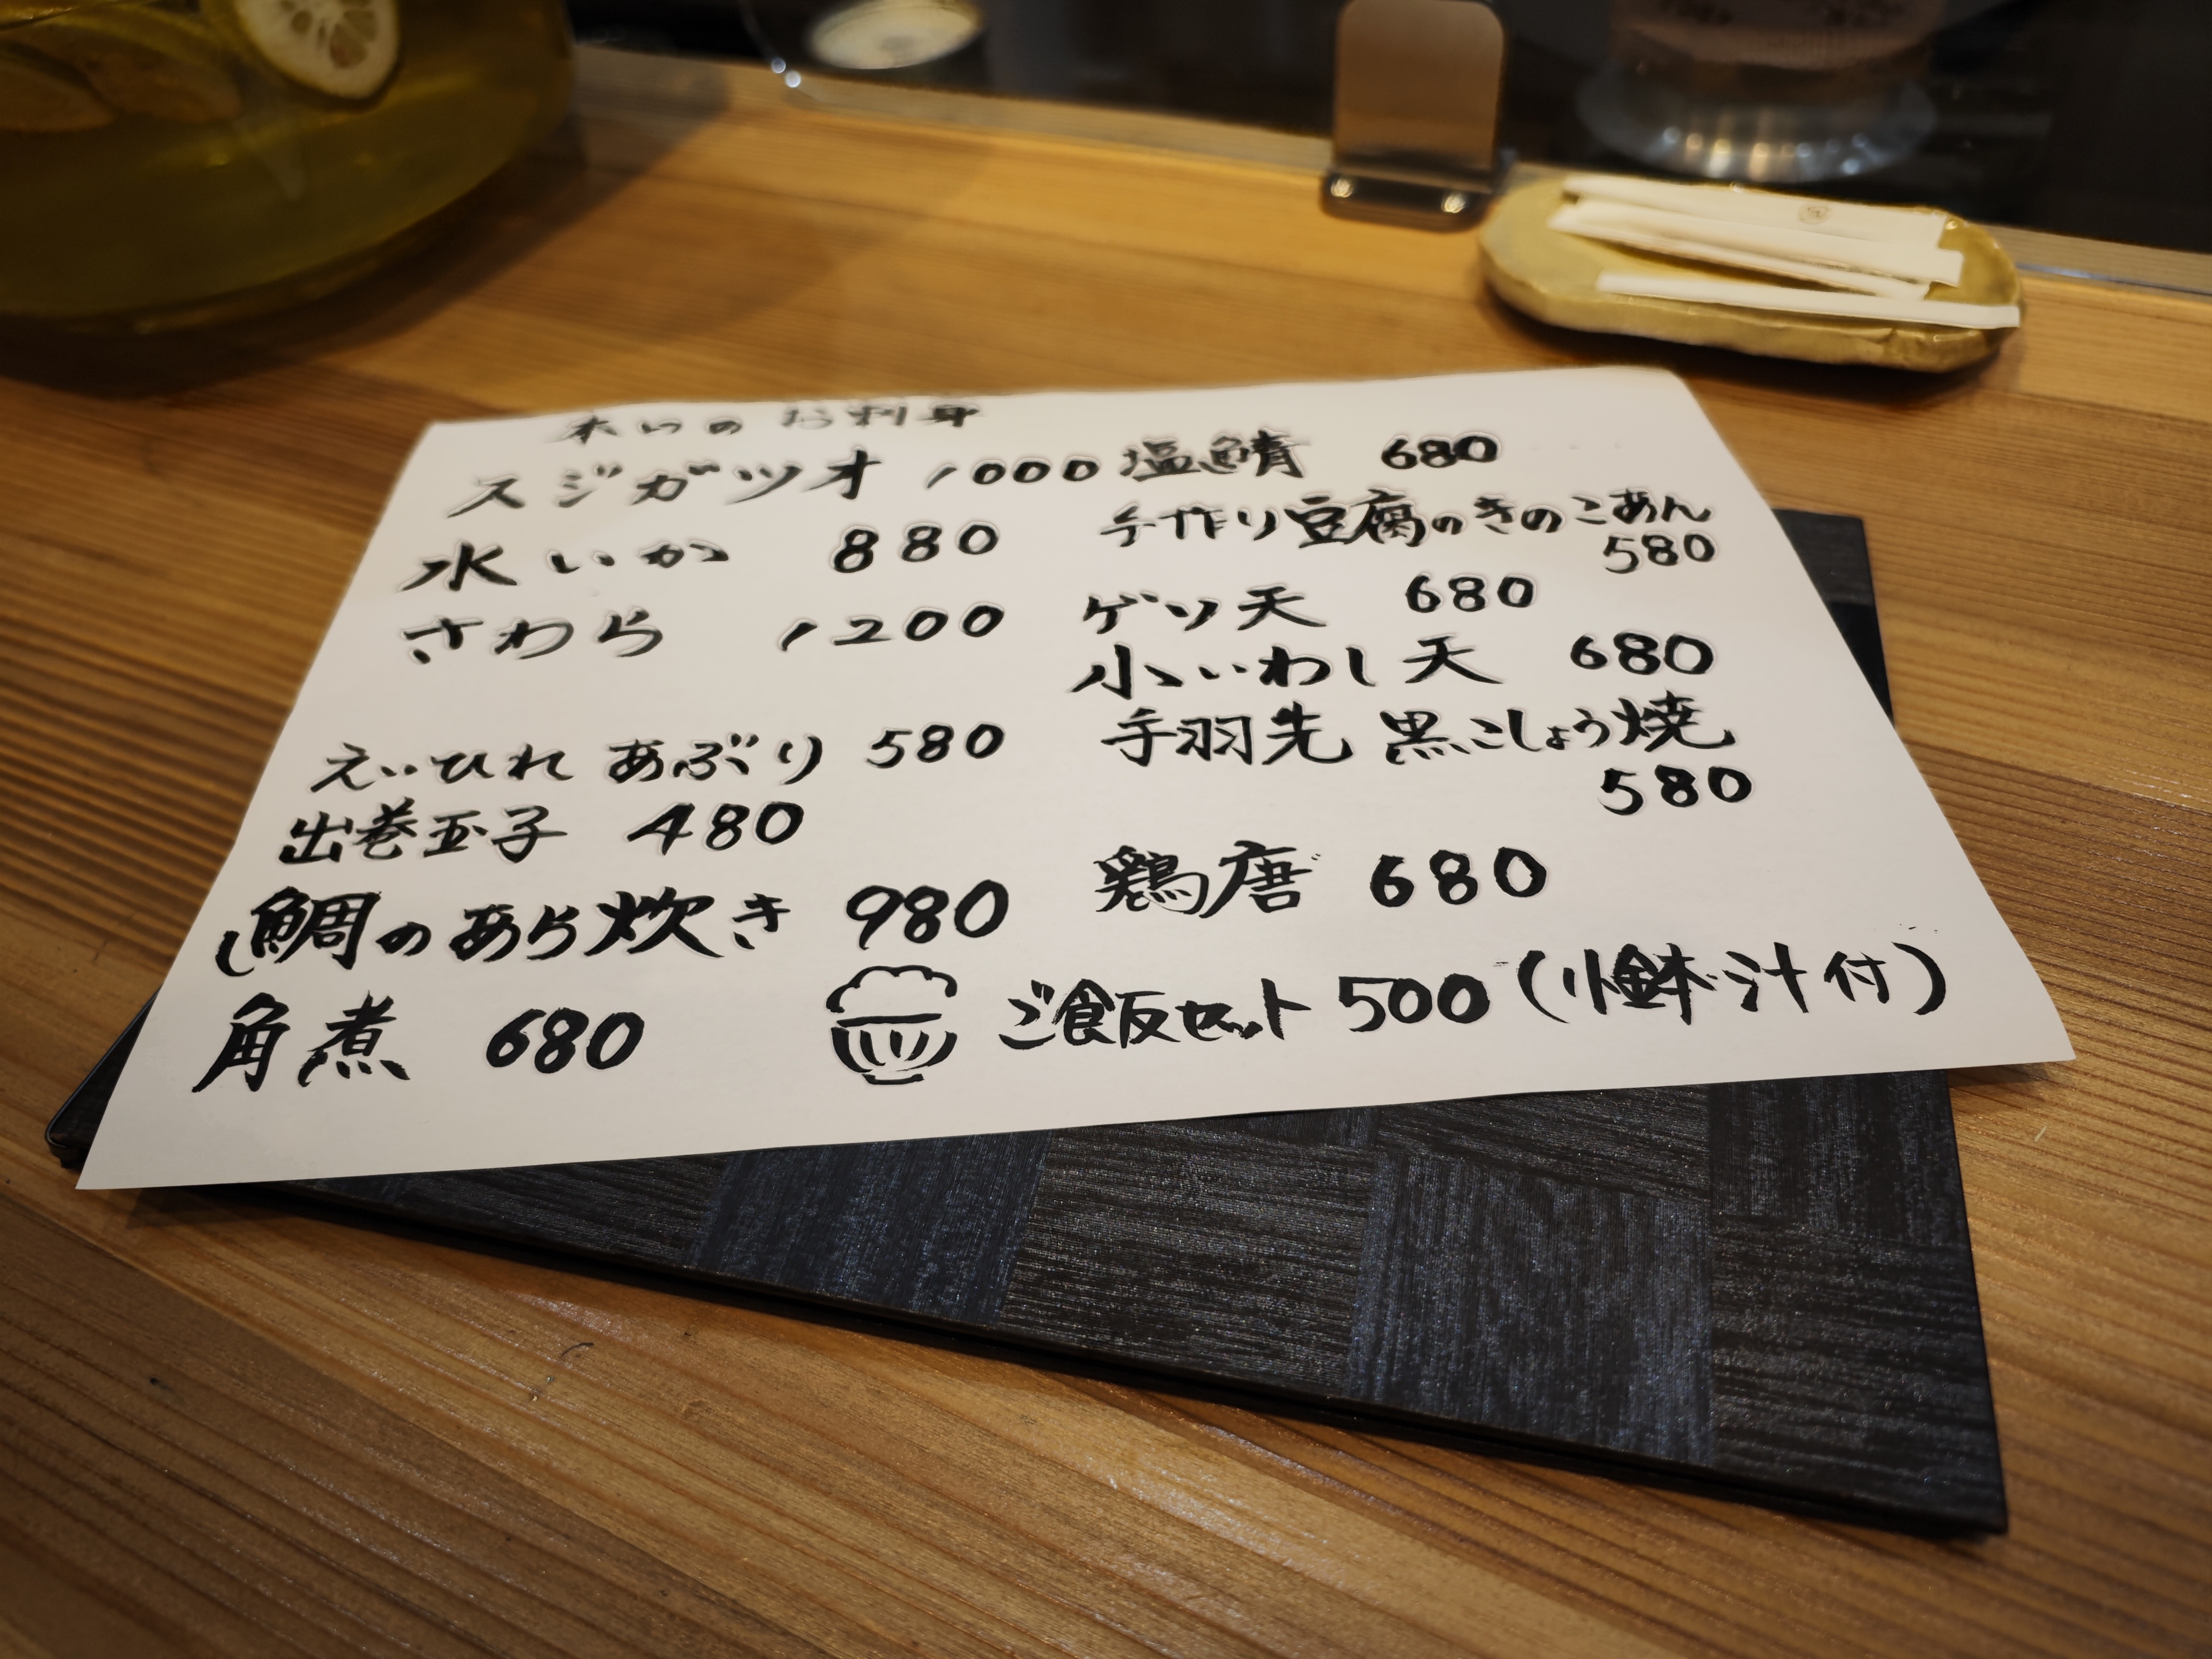 本日のお刺身
スジガツオ 1000
水いか 880
さわら 1200
えいひれ あぶり 580
出巻玉子 480
鯛のあら炊き 980
角煮 680
塩鯖 680
手作り豆腐のきのこあん
580
ゲソ天 680
小いわし天 680
手羽先 黒こしょう焼
580
鶏唐 680
ご飯セット 500 (小鉢・汁付)